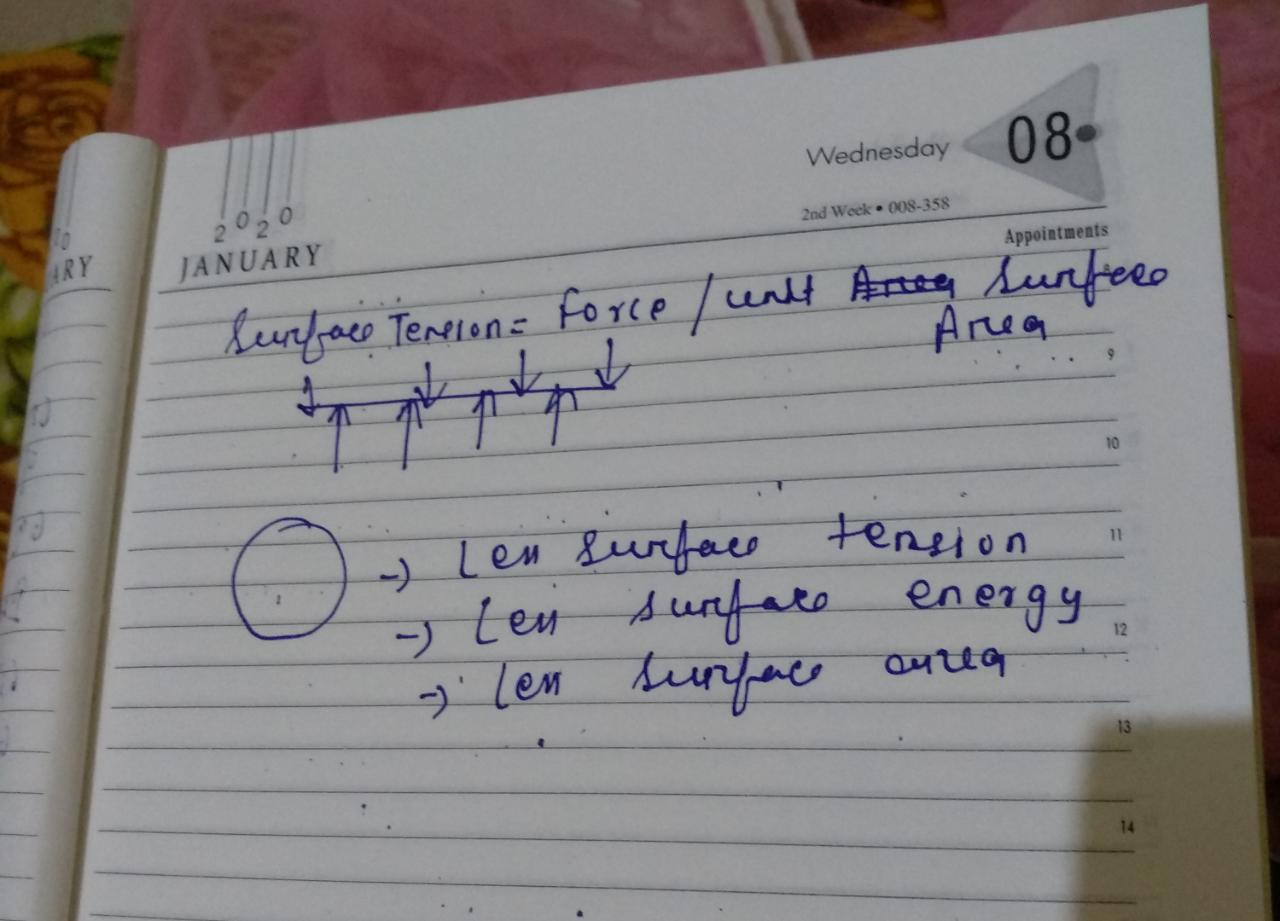 2020
JANUARY
Wednesday 08
2nd Week • 008-358
Appointments
Surface Tension = Force / unit Area Surface
Area
9
10
→ Less surface tension
11
→ Less surface energy
12
→ Less surface area
13
14
ARY